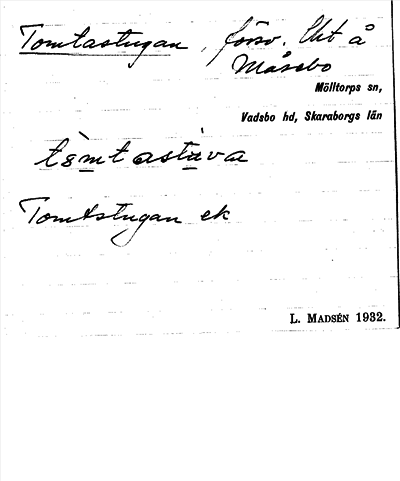 Tomtastugan, försv. lht å
Måsebo
Mölltorps sn,
Vadsbo hd, Skaraborgs län
tòmtastùva
Tomtstugan ek
L. MADSÉN 1932.